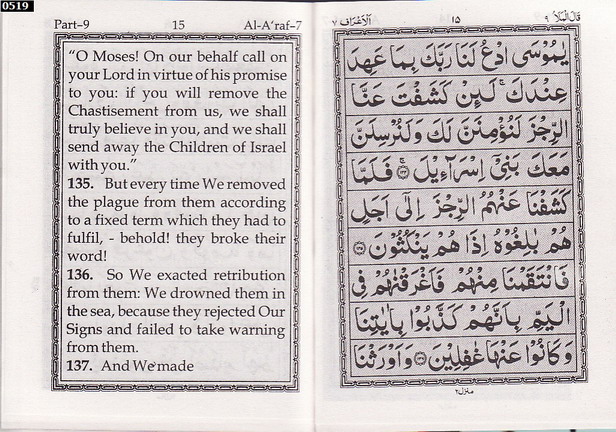 0519
Part–9 15 Al-A‘raf–7
“O Moses! On our behalf call on
your Lord in virtue of his promise
to you: if you will remove the
Chastisement from us, we shall
truly believe in you, and we shall
send away the Children of Israel
with you.”
135. But every time We removed
the plague from them according
to a fixed term which they had to
fulfil, - behold! they broke their
word!
136. So We exacted retribution
from them: We drowned them in
the sea, because they rejected Our
Signs and failed to take warning
from them.
137. And We made
قَالَ الْمَلَأُ ٩ ١٥ اَلْاَعْرَاف ٧
يٰمُوْسَى ادْعُ لَنَا رَبَّكَ بِمَا عَهِدَ
عِنْدَكَ ۚ لَئِنْ كَشَفْتَ عَنَّا
الرِّجْزَ لَنُؤْمِنَنَّ لَكَ وَلَنُرْسِلَنَّ
مَعَكَ بَنِيْٓ اِسْرَآءِيْلَ ۚ ١٣٤ فَلَمَّا
كَشَفْنَا عَنْهُمُ الرِّجْزَ اِلٰٓى اَجَلٍ
هُمْ بٰلِغُوْهُ اِذَا هُمْ يَنْكُثُوْنَ ١٣٥
فَانْتَقَمْنَا مِنْهُمْ فَاَغْرَقْنٰهُمْ فِى
الْيَمِّ بِاَنَّهُمْ كَذَّبُوْا بِاٰيٰتِنَا
وَكَانُوْا عَنْهَا غٰفِلِيْنَ ١٣٦ وَاَوْرَثْنَا
منزل ٢